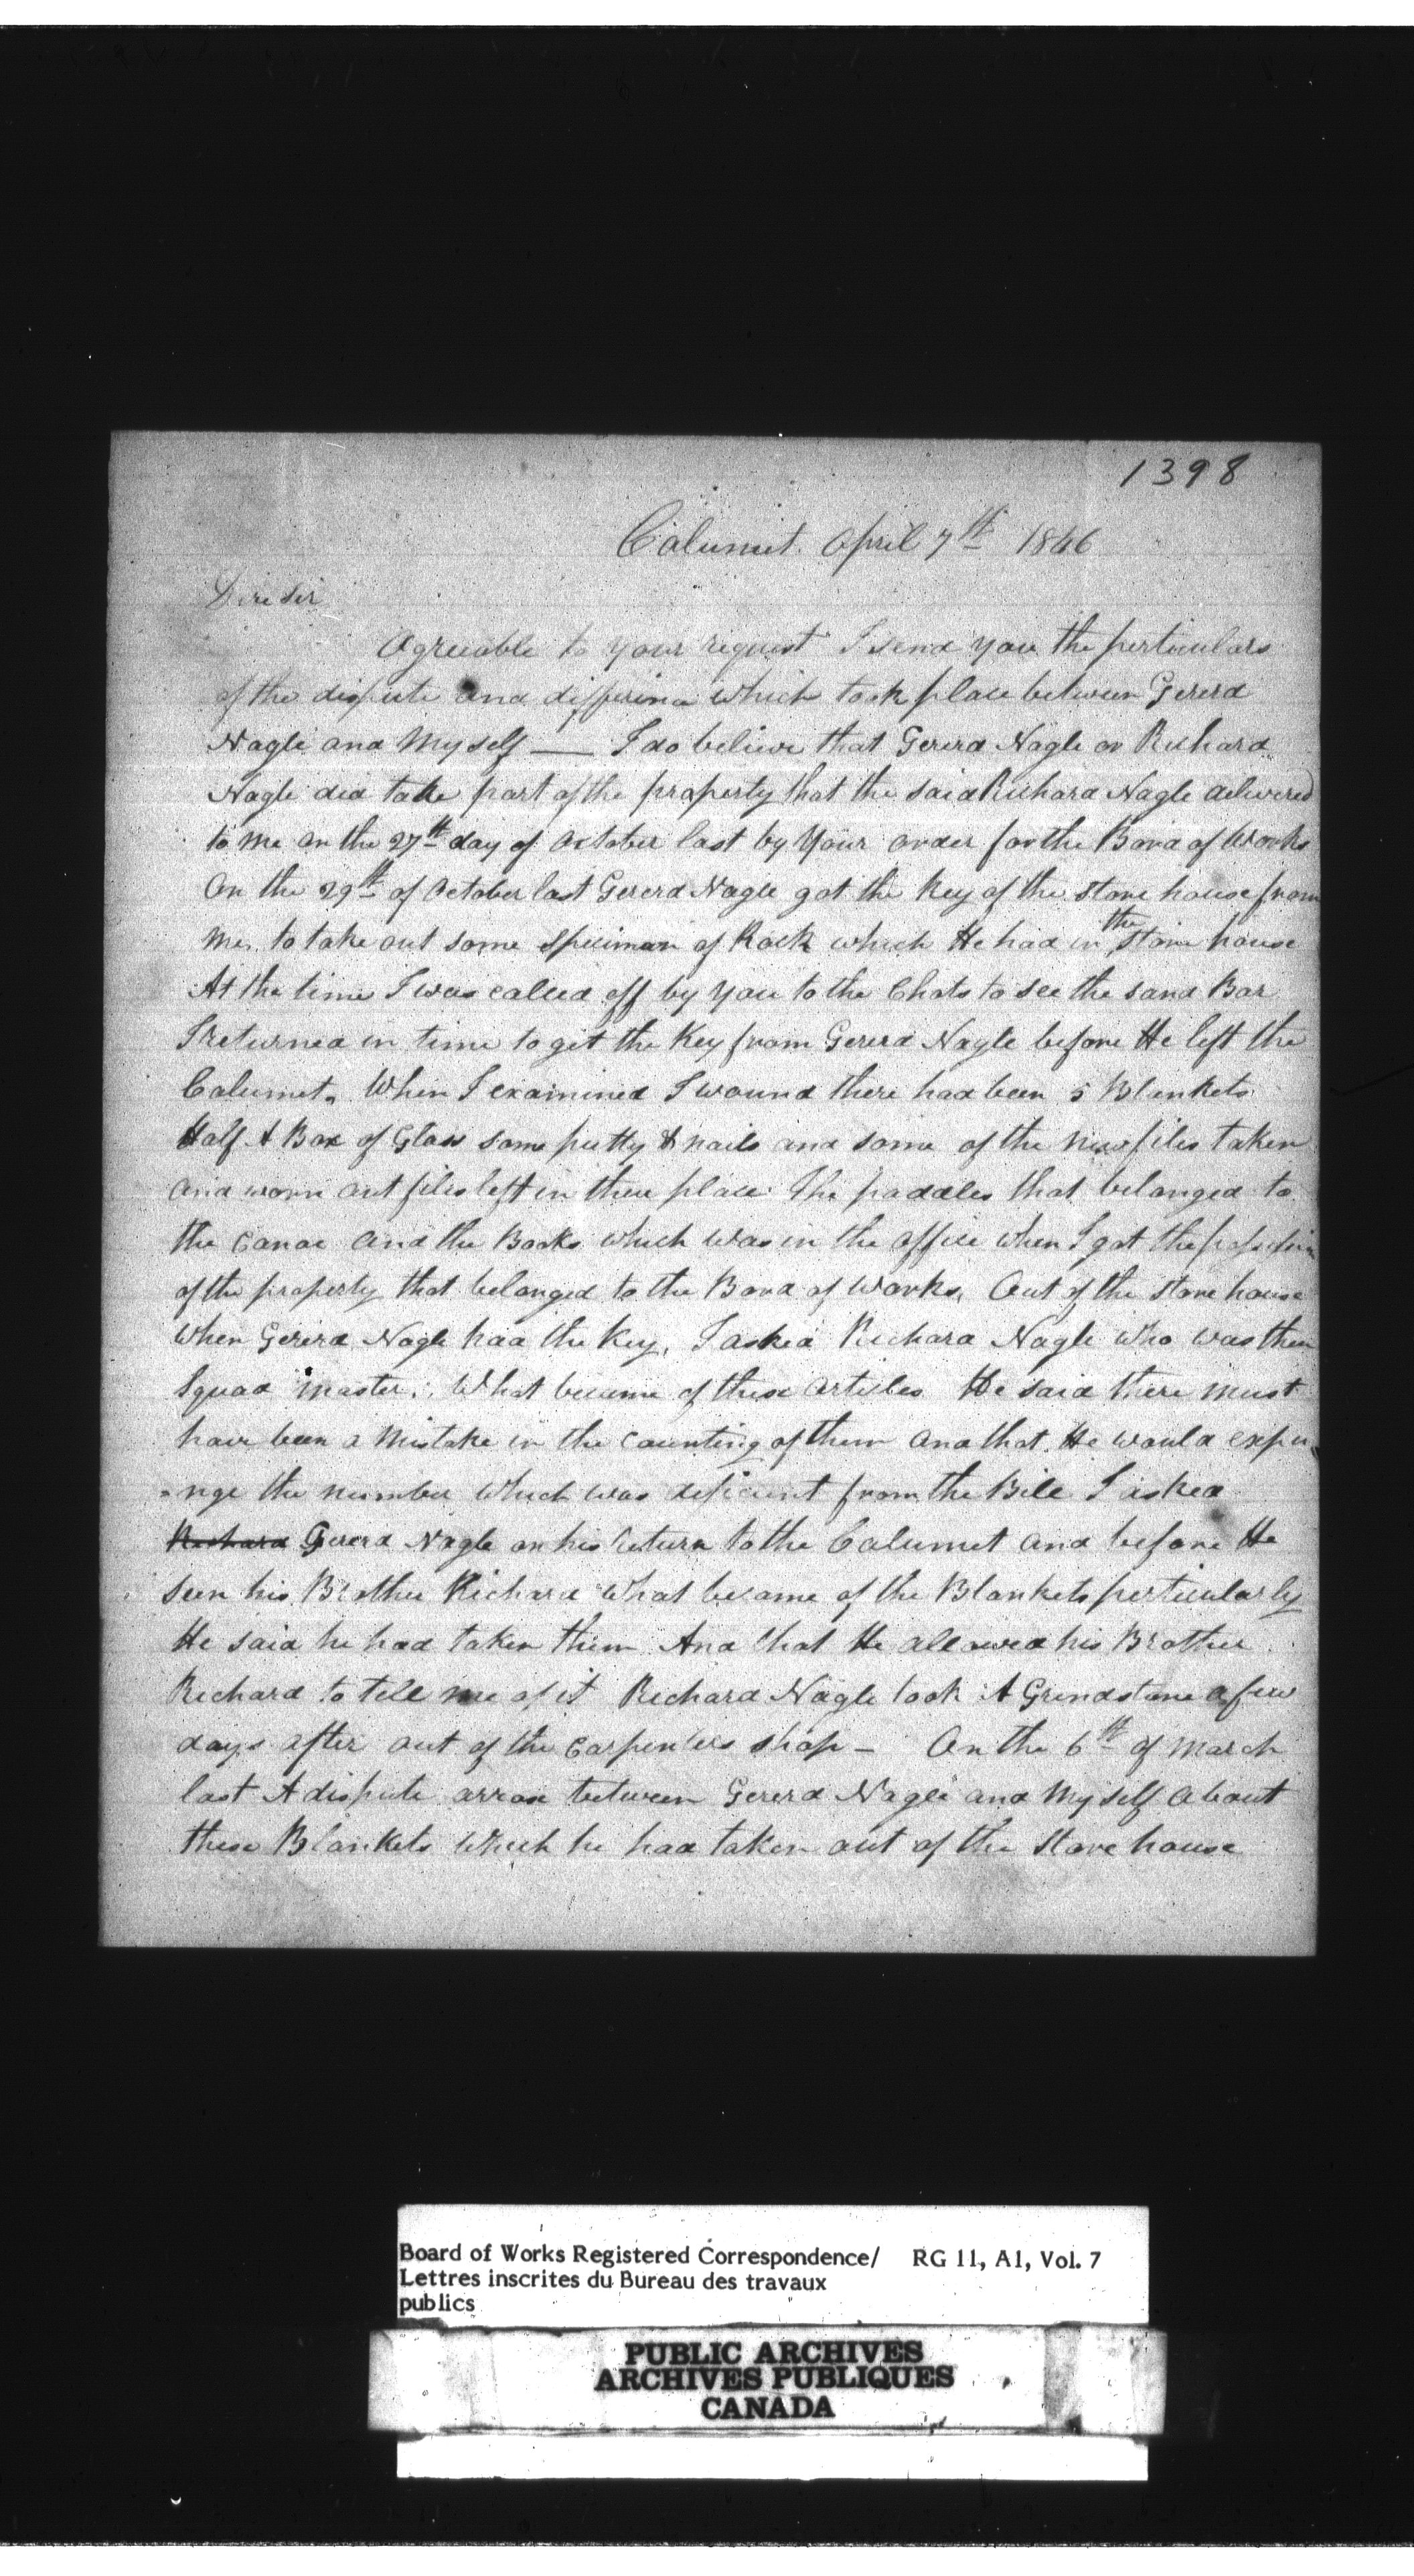 1398
Calumet. April 7th 1846
Dire Sir
Agreeable to your request I send you the perticulars
of the dispute and differince which took place between Gererd
Nagle and Myself — I do believe that Gererd Nagle or Richard
Nagle did take part of the property that the said Richard Nagle delivered
to me on the 27th day of October last by Your order for the Bord of Works
On the 29th of October last Gererd Nagle got the Key of the store house from
me. to take out some speciman of Rock which He had in the store house
At the time I was called off by you to the Chats to see the sand Bar
I returned in time to get the Key from Gererd Nagle before He left the
Calumet. When I examined I wound there had been 5 Blankets
Half A Box of Glass some putty & nails and some of the new files taken
and worn out files left in there place The paddles that belonged to
the canoe and the Books which was in the office when I got the
of the property that belonged to the Bord of Works, Out of the store house
when Gererd Nagle had the Key, I asked Richard Nagle who was then
Squad master; What became of these articles He said there must
have been a Mistake in the counting of them and that He would expu-
-nge the number which was deficient from the Bill I asked
Richard Gererd Nagle on his return to the Calumet and before He
seen his Brother Richard what became of the Blankets perticularly
He said he had taken them And that He allowed his Brother
Richard to tell me of it Richard Nagle took A Grindstone a few
days after out of the Carpenters shop - On the 6th of March
last A dispute arrose between Gererd Nagle and Myself About
these Blankets which he had taken out of the store house
Board of Works Registered Correspondence/ RG 11, A1, Vol. 7
Lettres inscrites du Bureau des travaux
publics
PUBLIC ARCHIVES
ARCHIVES PUBLIQUES
CANADA